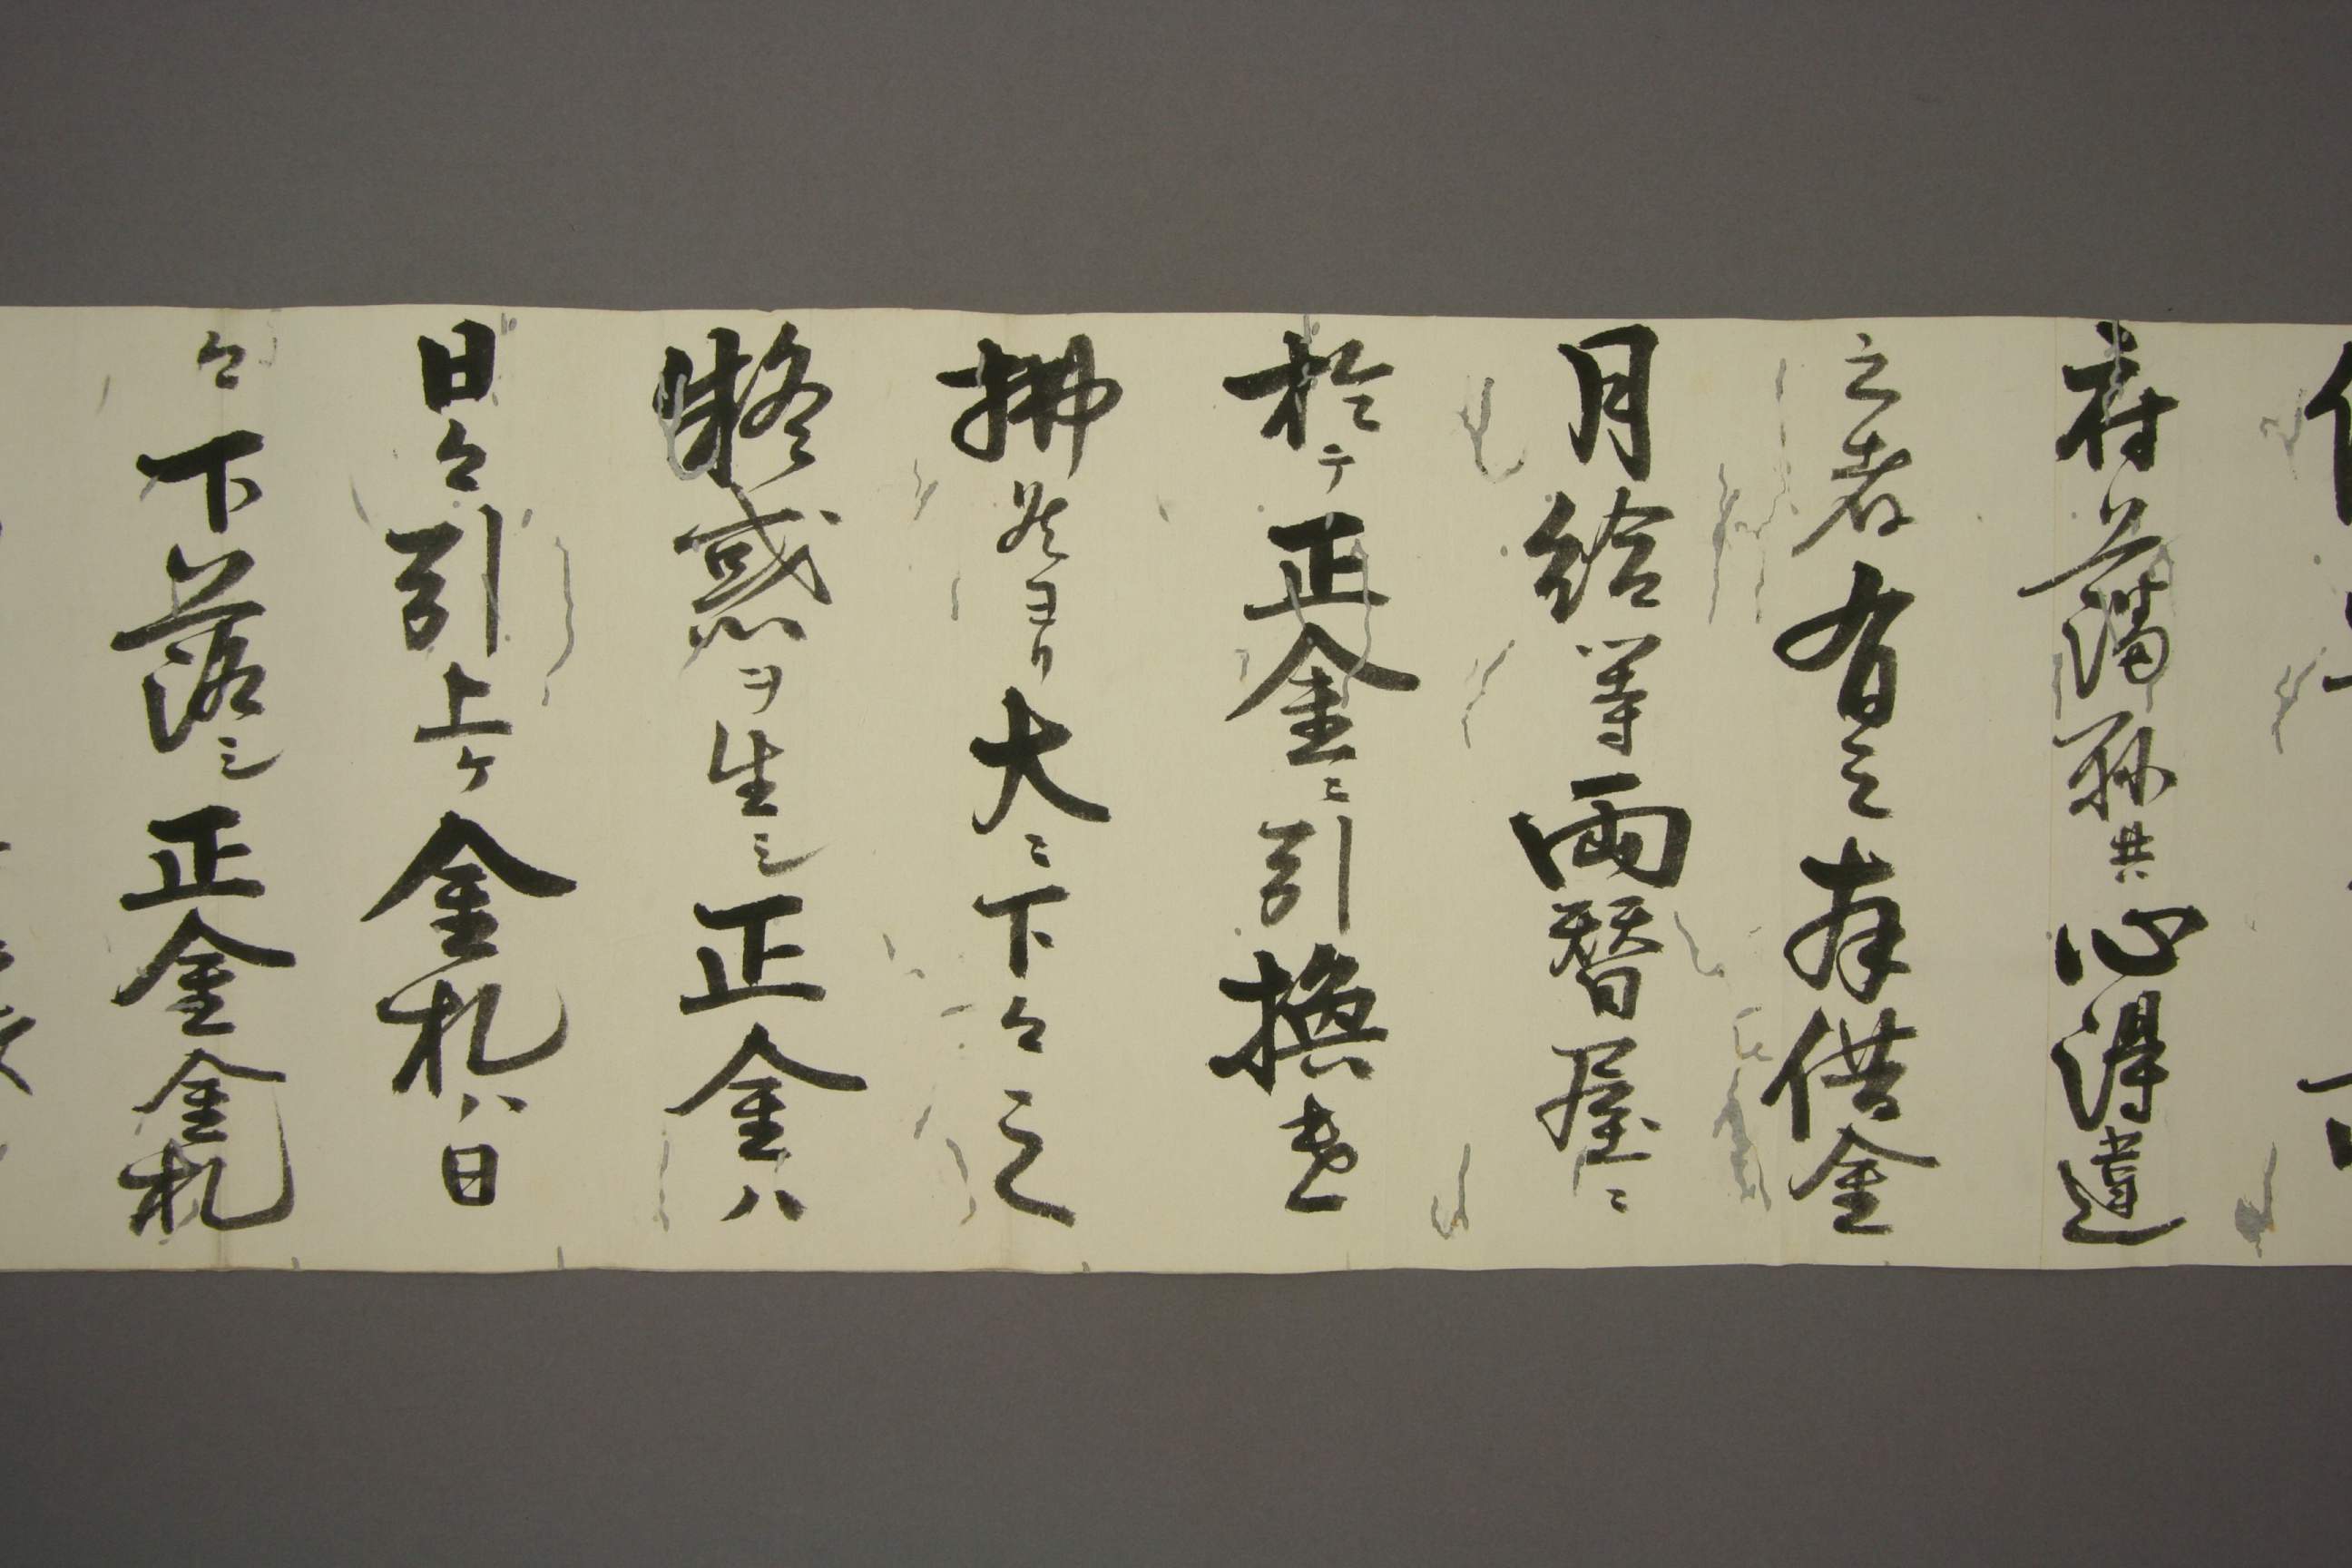 府藩縣共心得違
之者有之拝借金
月給等兩替屋ニ
於テ正金ニ引換遣
拂候ヨリ大ニ下々之
疑惑ヲ生シ正金ハ
日々引上ケ金札ハ日
々下落シ正金金札